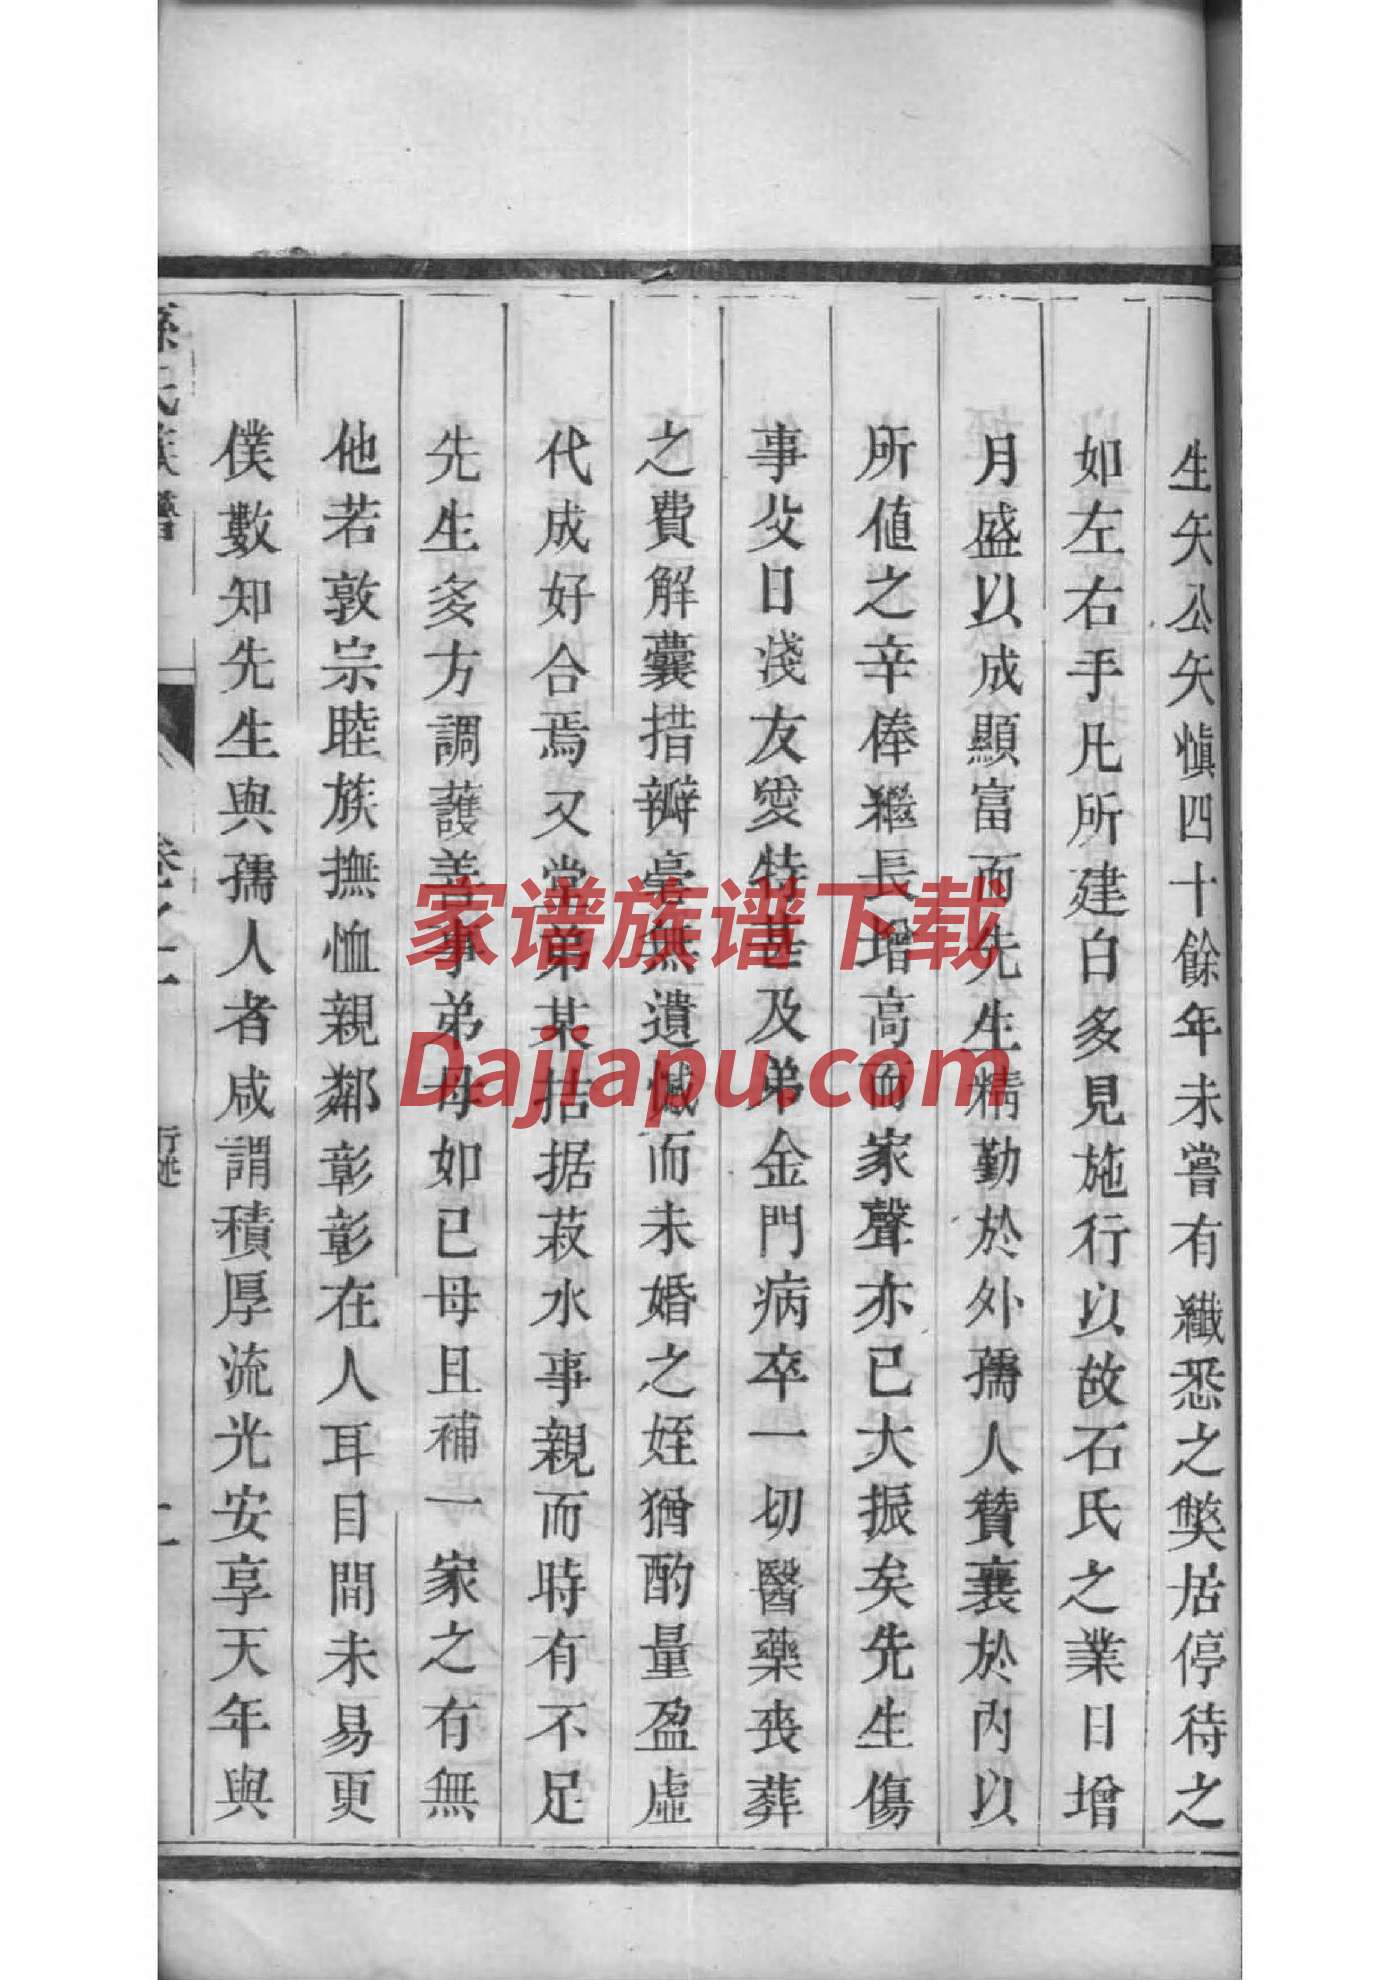 生矢公矢愼四十餘年未嘗有纖悉之獘居停待之
如左右手凡所建白多見施行以故石氏之業日增
月盛以成顯富而先生精勤於外孺人贊襄於內以
所値之辛俸繼長增高而家聲亦已大振矣先生傷
事父日淺友愛特甚及弟金門病卒一切醫藥喪葬
之費解囊措辦毫無遺憾而未婚之姪猶酌量盈虛
代成好合焉又堂弟某拮据菽水事親而時有不足
先生多方調護善事弟母如己母且補一家之有無
他若敦宗睦族撫恤親鄰彰彰在人耳目間未易更
僕數知先生與孺人者咸謂積厚流光安享天年與
孫氏族譜
卷之一
行述
家谱族谱下载
Dajiapu.com